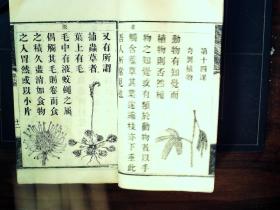 第十四課
奇異植物
動物有知覺而
植物則否然植
物之知覺或有類於動物者以手
觸含羞草其葉遂捲枝亦下垂此
吾人所常見也
又有所謂
捕蟲草者
葉上有毛
毛中有液蚊蠅之屬
偶觸其毛則卷而食
之積久盡消如食物
之入胃然或以小片